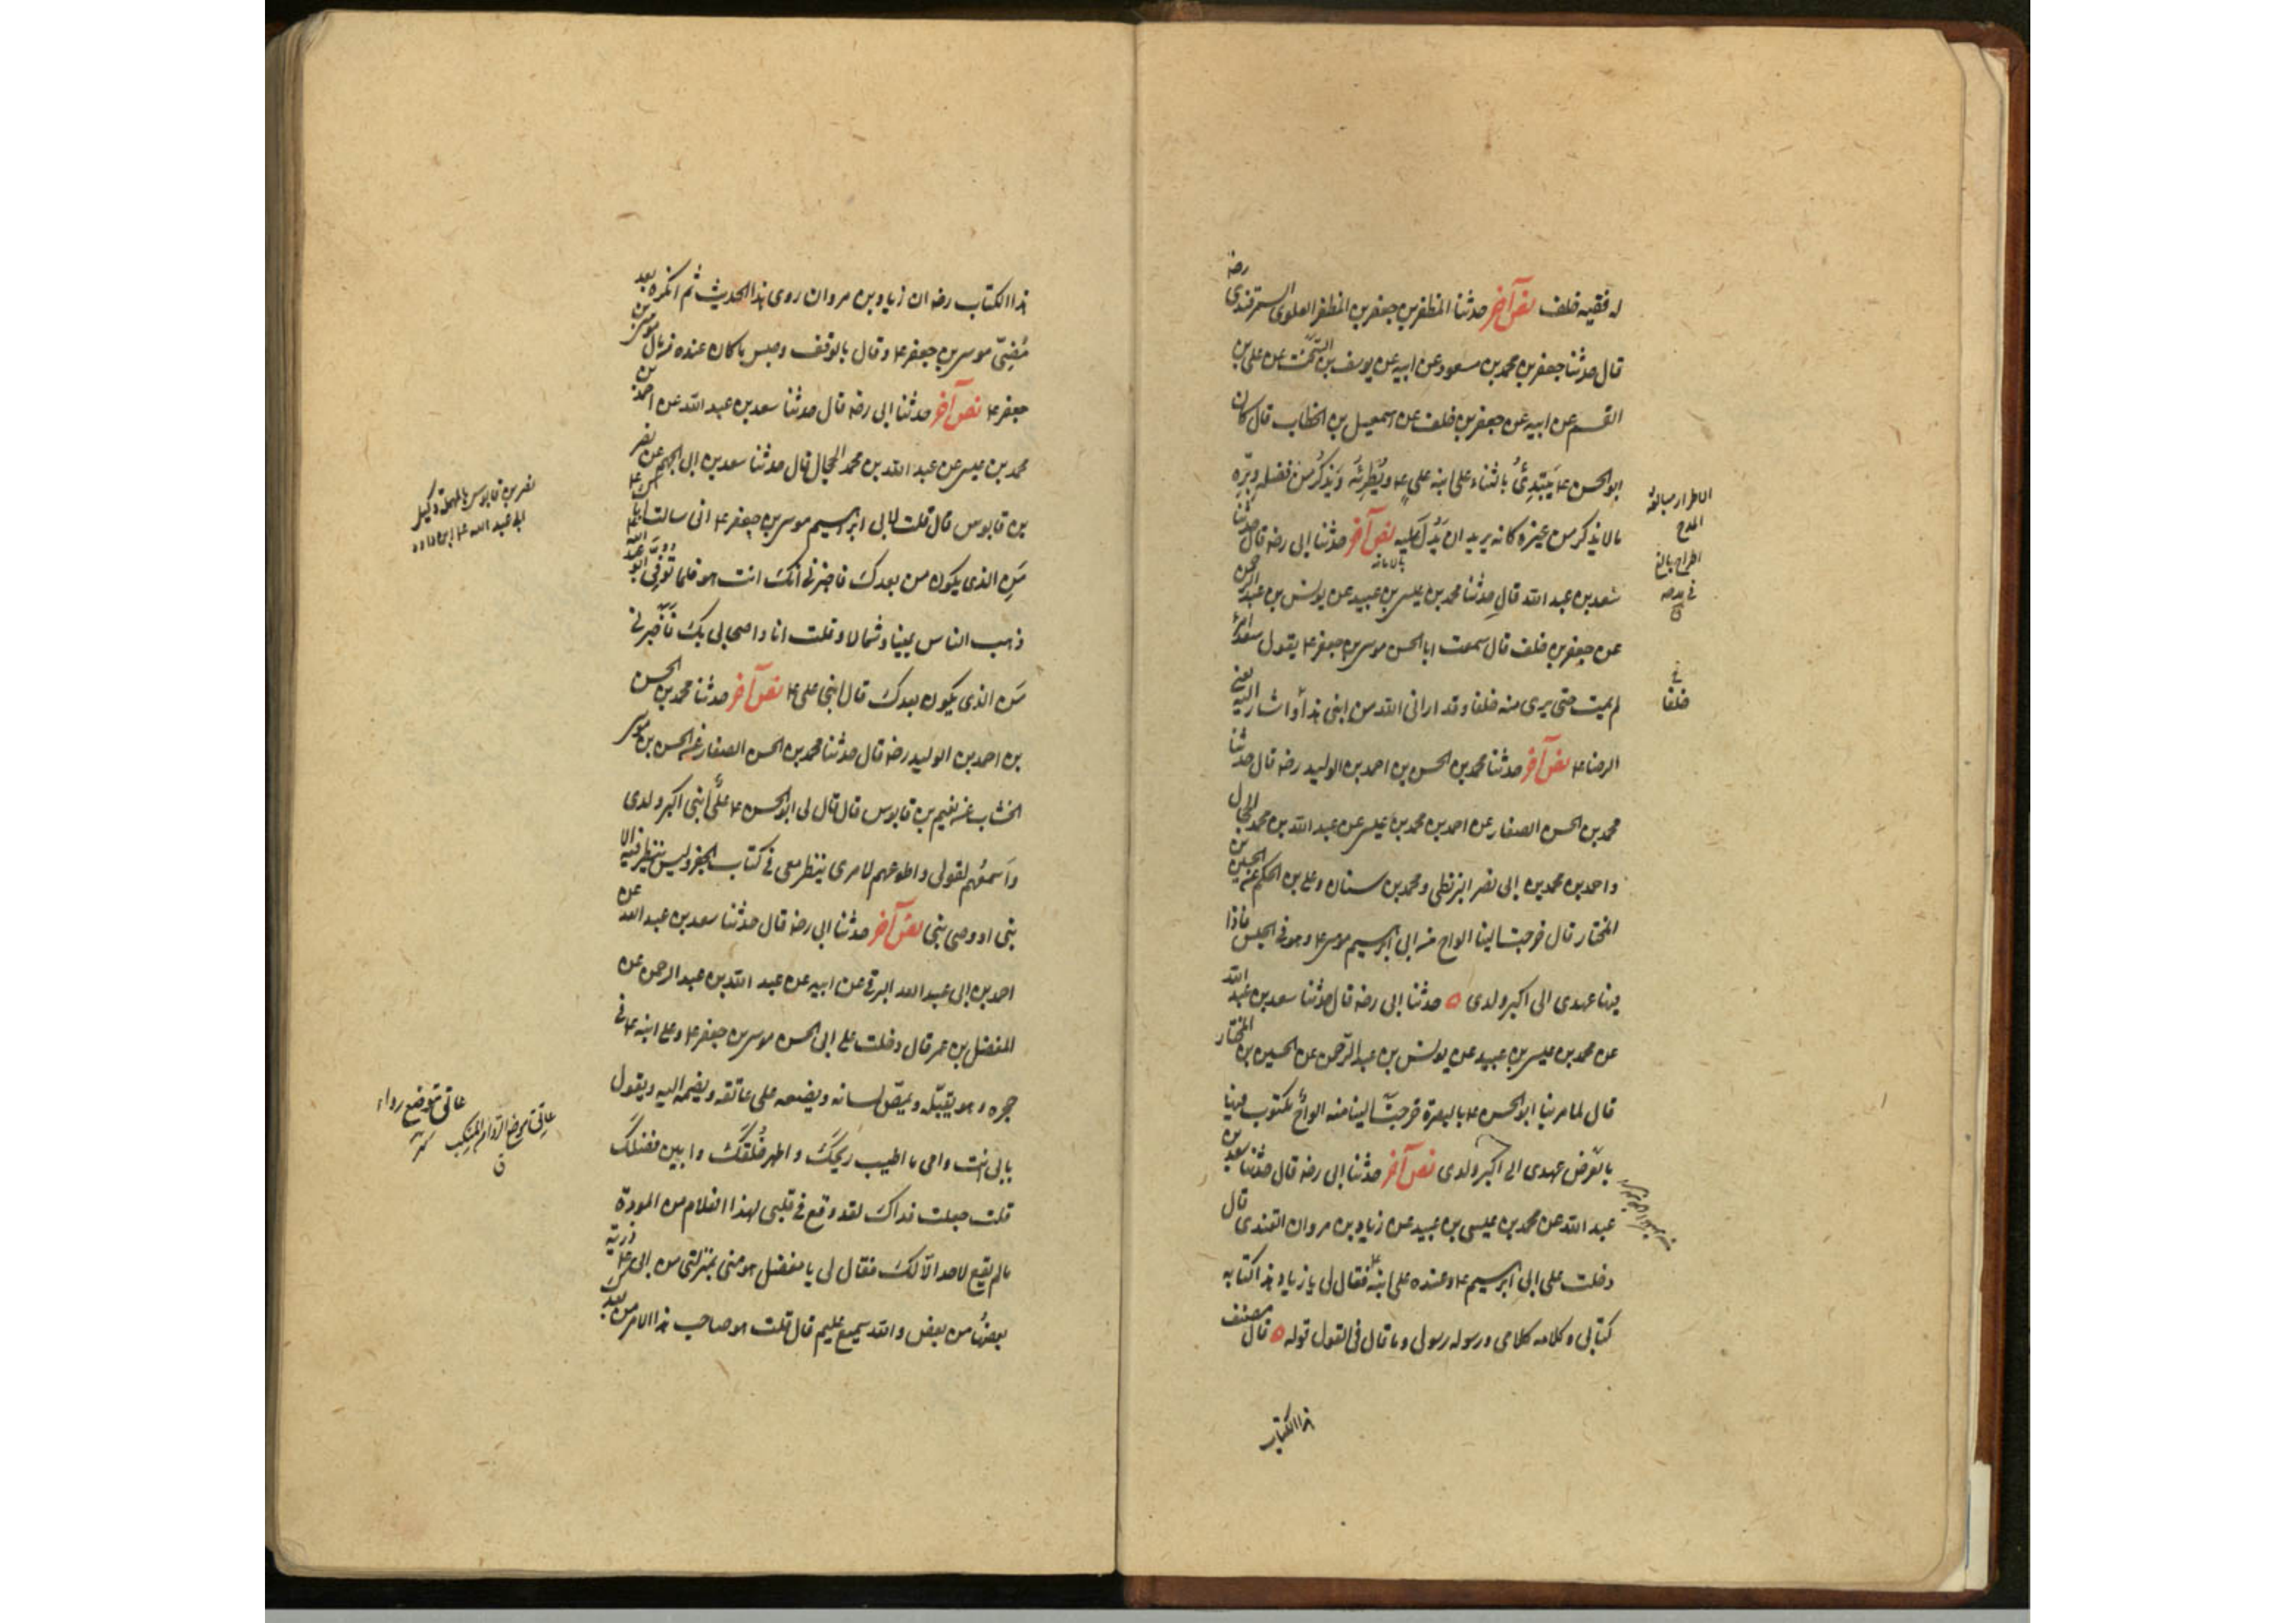 له فقيه خلف نص آخر حدثنا المظفر بن جعفر بن المظفر العلوى السمرقندى رضه
قال حدثنا جعفر بن محمد بن مسعود عن ابيه عن يوسف بن السخت عن على بن
القسم عن ابيه عن جعفر بن خلف عن اسمعيل بن الخطاب قال كان
ابو الحسن ع يَبْتَدِئُ بالثناء على ابنه على ع ويُطرِئُه وَيَذكُرُ من فضله وبِرّه
ما لا يذكر من غيره كانه يريد ان يَدُلَ عليه نص آخر حدثنا ابى رضه قال حدثنا
سعد بن عبد الله قال حدثنا محمد بن عيسى بن عبيد عن يونس بن عبد الرحمن
عن جعفر بن خلف قال سمعت ابا الحسن موسى بن جعفر ع يقول سعد امرؤ
لم يمت حتى يرى منه خلفا وقد ارانى الله من ابنى هذا واشار اليه يعنى
الرضا ع نص آخر حدثنا محمد بن الحسن بن احمد بن الوليد رضه قال حدثنا
محمد بن الحسن الصفار عن احمد بن محمد بن عيسى عن عبد الله بن محمد الحجال
واحمد بن محمد بن ابى نصر البزنطى ومحمد بن سنان وعلى بن الحكم عن الحسين بن
المختار قال خرجت الينا الواح من ابى ابرهيم موسى ع وهو فى الحبس فاذا
فيها عهدى الى اكبر ولدى ه حدثنا ابى رضه قال حدثنا سعد بن عبد الله
عن محمد بن عيسى بن عبيد عن يونس بن عبد الرّحمن عن الحسين بن المختار
قال لما مر بنا ابو الحسن ع بالبصرة خرجت الينا منه الواح مكتوب فيها
بالعَرض عهدى الى اكبر ولدى نص آخر حدثنا ابى رضه قال حدثنا سعد بن
عبد الله عن محمد بن عيسى بن عبيد عن زياد بن مروان القندى قال
دخلت على ابى ابرهيم ع وعنده على ابنه فقال لى يا زياد هذا كتابه
كتابى وكلامه كلامى ورسوله رسولى وما قال فى القول قوله ه قال مصنف
هذا الكتاب
الاطراء مبالغة
المدح
فى مدحه
خلفا
هذا الكتاب رضه ان زياد بن مروان روى هذا الحديث ثم انكره بعد
مُضِىّ موسى بن جعفر ع وقال بالوقف وحبس ما كان عنده من مال موسى بن
جعفر ع نص آخر حدثنا ابى رضه قال حدثنا سعد بن عبد الله عن احمد بن
محمد بن عيسى عن عبد الله بن محمد الحجال قال حدثنا سعد بن ابى الجهم عن نصر
بن قابوس قال قلت لابى ابرهيم موسى بن جعفر ع انى سالت اباك ع
مَن الذى يكون من بعدك فاخبرنى انك انت هو فلما تُوفّى ابو عبد الله
ذهب الناس يمينا وشمالا وقلت انا واصحابى بك فاَخبِرنى
مَن الذى يكون بعدك قال ابنى على ع نص آخر حدثنا محمد بن الحسن
بن احمد بن الوليد رضه قال حدثنا محمد بن الحسن الصفار عن الحسن بن موسى
الخشاب عن نعيم بن قابوس قال قال لى ابو الحسن ع علىٌّ ابنى اكبر ولدى
واَسمَعُهم لقولى واطوعهم لامرى ينظر معى فى كتاب الجفر وليس ينظر فيه الا
نبى او وصى نبى نص آخر حدثنا ابى رضه قال حدثنا سعد بن عبد الله عن
احمد بن ابى عبد الله البرقى عن ابيه عن عبد الله بن عبد الرحمن عن
المفضل بن عمر قال دخلت على ابى الحسن موسى بن جعفر ع وعلى ابنه ع فى
حجره وهو يقبّله ويمصّ لسانه ويضعه على عاتقه ويضمه اليه ويقول
بابى انت وامى ما اطيب ريحكَ واطهر خُلُقَكَ وابين فضلك
قلت جعلت فداك لقد وقع فى قلبى لهذا الغلام من المودة
ما لم يقع لاحد الّا لك فقال لى يا مفضل هو منى بمنزلتى من ابى ع ذرية
بعضها من بعض والله سميع عليم قال قلت هو صاحب هذا الامر من بعدك
نصر بن قابوس وكيل
ابى عبد الله ع
عاتق موضع رداء